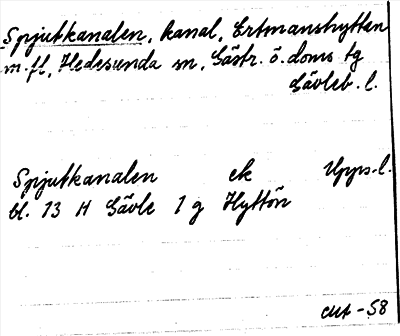 Spjutkanalen, kanal, Ertmanshyttan
m.fl., Hedesunda sn, Gästr. ö. doms tg
Gävleb. l.
Spjutkanalen ek Upps. l.
bl. 13 H Gävle 1 g Hyttön
-58